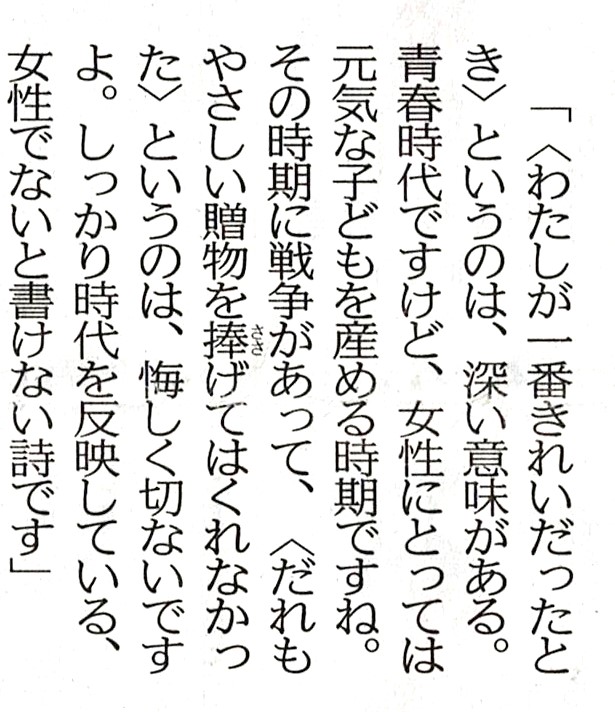 「〈わたしが一番きれいだったと
き〉というのは、深い意味がある。
青春時代ですけど、女性にとっては
元気な子どもを産める時期ですね。
その時期に戦争があって、〈だれも
やさしい贈物を捧げてはくれなかっ
ささ
た〉というのは、悔しく切ないです
よ。しっかり時代を反映している、
女性でないと書けない詩です」